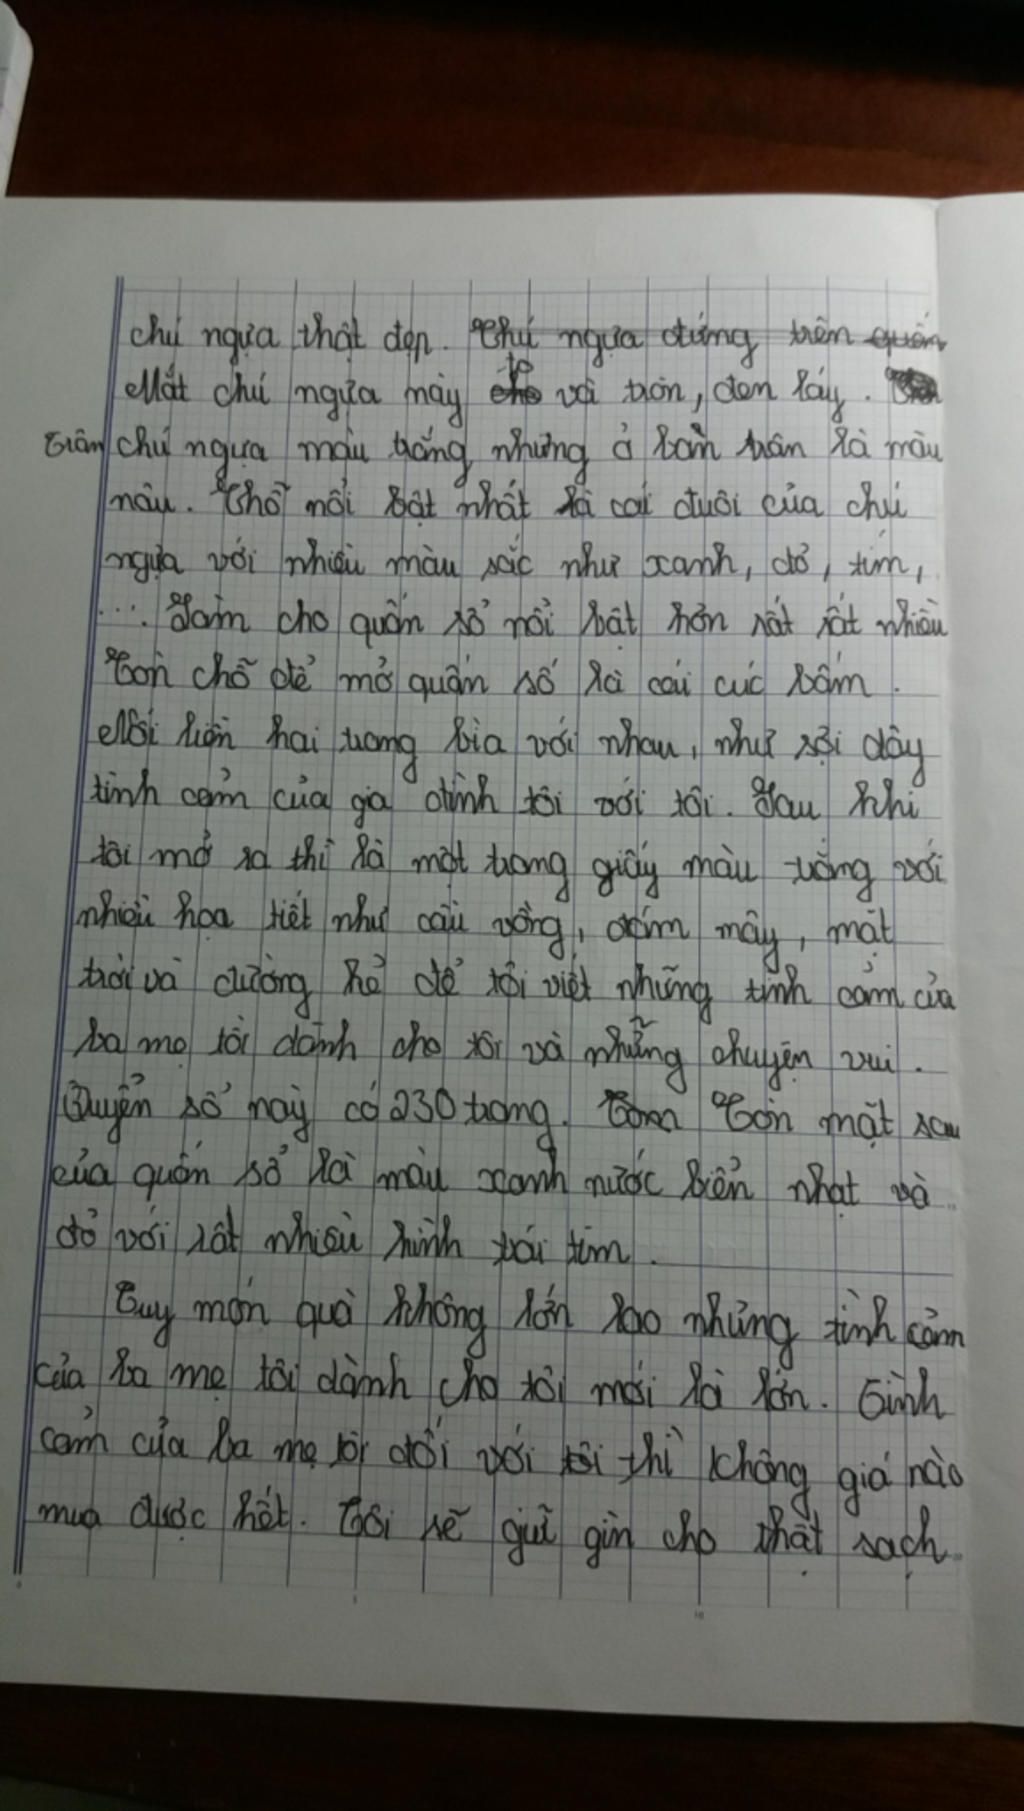 chú ngựa thật đẹp. Chú ngựa đứng trên quển
Mắt chú ngựa này to và tròn, đen láy.
Thân chú ngựa màu trắng nhưng ở bờm chân là màu
nâu. Chỗ nổi bật nhất là cái đuôi của chú
ngựa với nhiều màu sắc như xanh, đỏ, tím,
... Làm cho quển sổ nổi bật hơn rất rất nhiều
Còn chỗ để mở quển số là cái cúc bấm.
Nối liền hai trang bìa với nhau, như sợi dây
tình cảm của gia đình tôi với tôi. Sau khi
tôi mở ra thì là một trang giấy màu trắng với
nhiều họa tiết như cầu vồng, đám mây, mặt
trời và đường kẻ để tôi viết những tình cảm của
ba mẹ tôi dành cho tôi và những chuyện vui.
Quyển sổ này có 230 trang. Còn Còn mặt sau
của quển sổ là màu xanh nước biển nhạt và
đỏ với rất nhiều hình trái tim.
Tuy món quà không lớn lao nhưng tình cảm
của ba mẹ tôi dành cho tôi mới là lớn. Tình
cảm của ba mẹ tôi đối với tôi thì không giá nào
mua được hết. Tôi sẽ giữ gìn cho thật sạch